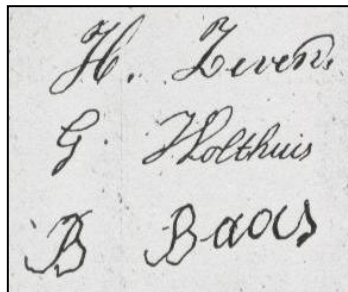 H. Zeven
G. Holthuis
B Baas